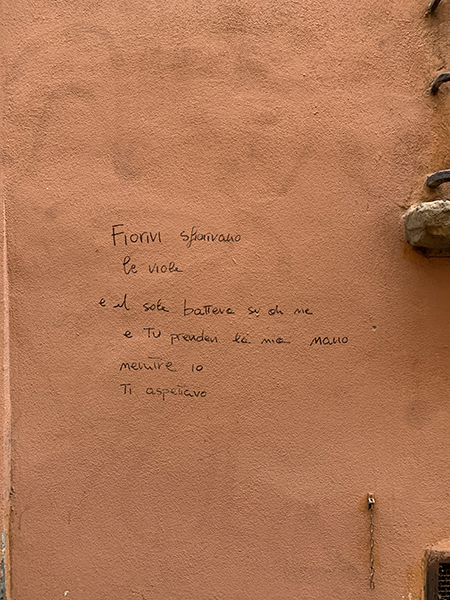 Fiorivi sfiorivano
le viole
e il sole batteva su di me
e Tu prendevi la mia mano
mentre io
Ti aspettavo